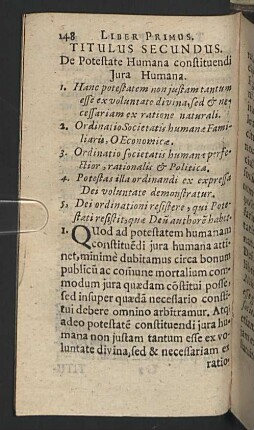 148 LIBER PRIMUS.
TITULUS SECUNDUS.
De Potestate Humana constituendi
Jura Humana.
1. Hanc potestatem non justam tantum
esse ex voluntate divina, sed & ne-
cessariam ex ratione naturali.
2. Ordinatio Societatis humanæ Fami-
liaris, O Economicæ.
3. Ordinatio societatis humanæ perfe-
ctior, rationalis & Politica.
4. Potestas illa ordinandi ex expressa
Dei voluntate demonstratur.
5. Dei ordinationi resistere, qui Pote-
stati resistit, quæ Deũ authorẽ habet.
1. QUod ad potestatem humanam
constituẽdi jura humana atti-
net, minimè dubitamus circa bonum
publicũ ac com̃une mortalium com-
modum jura quædam cõstitui posse,
sed insuper quædã necessario consti-
tui debere omnino arbitramur. Atq;
adeo potestatẽ constituendi jura hu-
mana non justam tantum esse ex vo-
luntate divina, sed & necessariam ex
ratio-